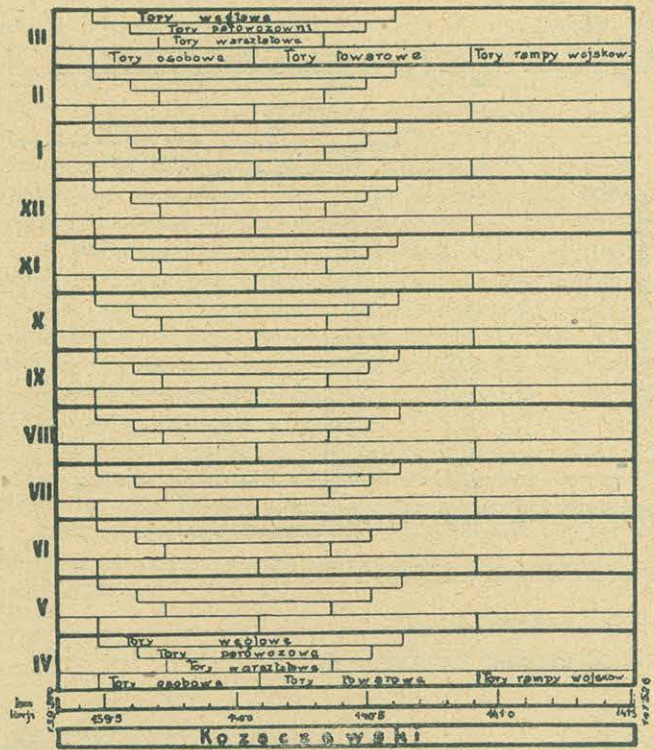 Tory węglowe
Tory parowozowni
Tory warsztatowe
III
Tory osobowe Tory towarowe Tory rampy wojskow.
II
I
XII
XI
X
IX
VIII
VII
VI
V
Tory węglowe
Tory parowozowe
IV
Tory warsztatowe
Tory osobowa Tory towarowe Tory rampy wojskow
139.5 140.0 140.5 141.0 141.5
Kozaczewski